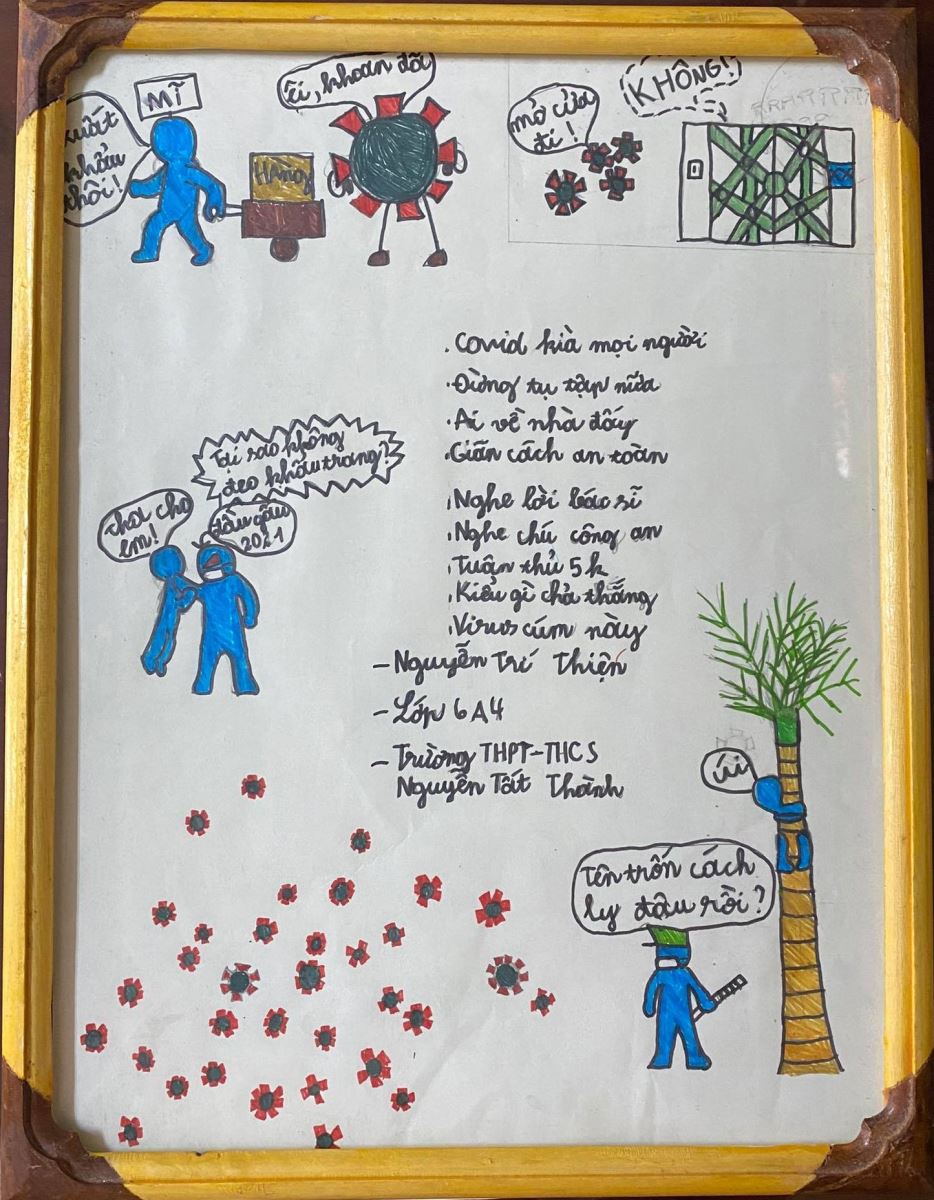 xuất
khẩu
thôi!
MĨ
HÀNG
Ối, khoan đã
mở cửa
đi!
KHÔNG!
. Covid kià mọi người
. Đừng tụ tập nữa
. Ai về nhà đấy
. Giãn cách an toàn
, Nghe lời bác sĩ
, Nghe chú công an
, Tuân thủ 5k
, Kiểu gì chả thắng
, Virus cúm này
- Nguyễn Trí Thiện
- Lớp 6A4
- Trường THPT-THCS
Nguyễn Tất Thành
Tại sao không
đeo khẩu trang?
tha cho
em!
2021
úi
Tên trốn cách
ly đâu rồi?